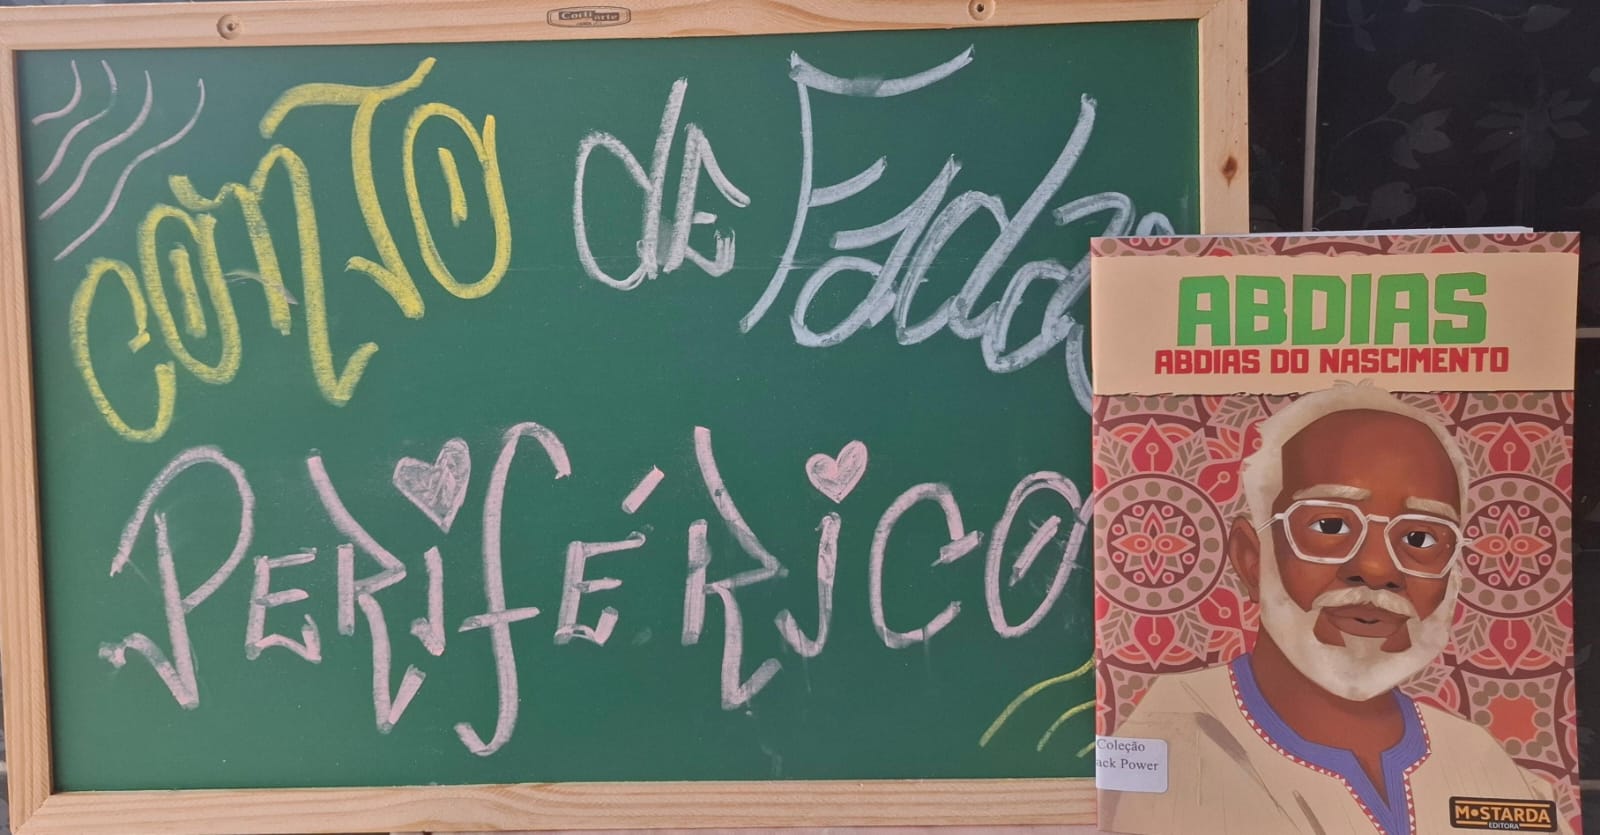 CONTO de Fadas
PERIFÉRICO
ABDIAS
ABDIAS DO NASCIMENTO
Coleção
ack Power
M•STARDA
EDITORA